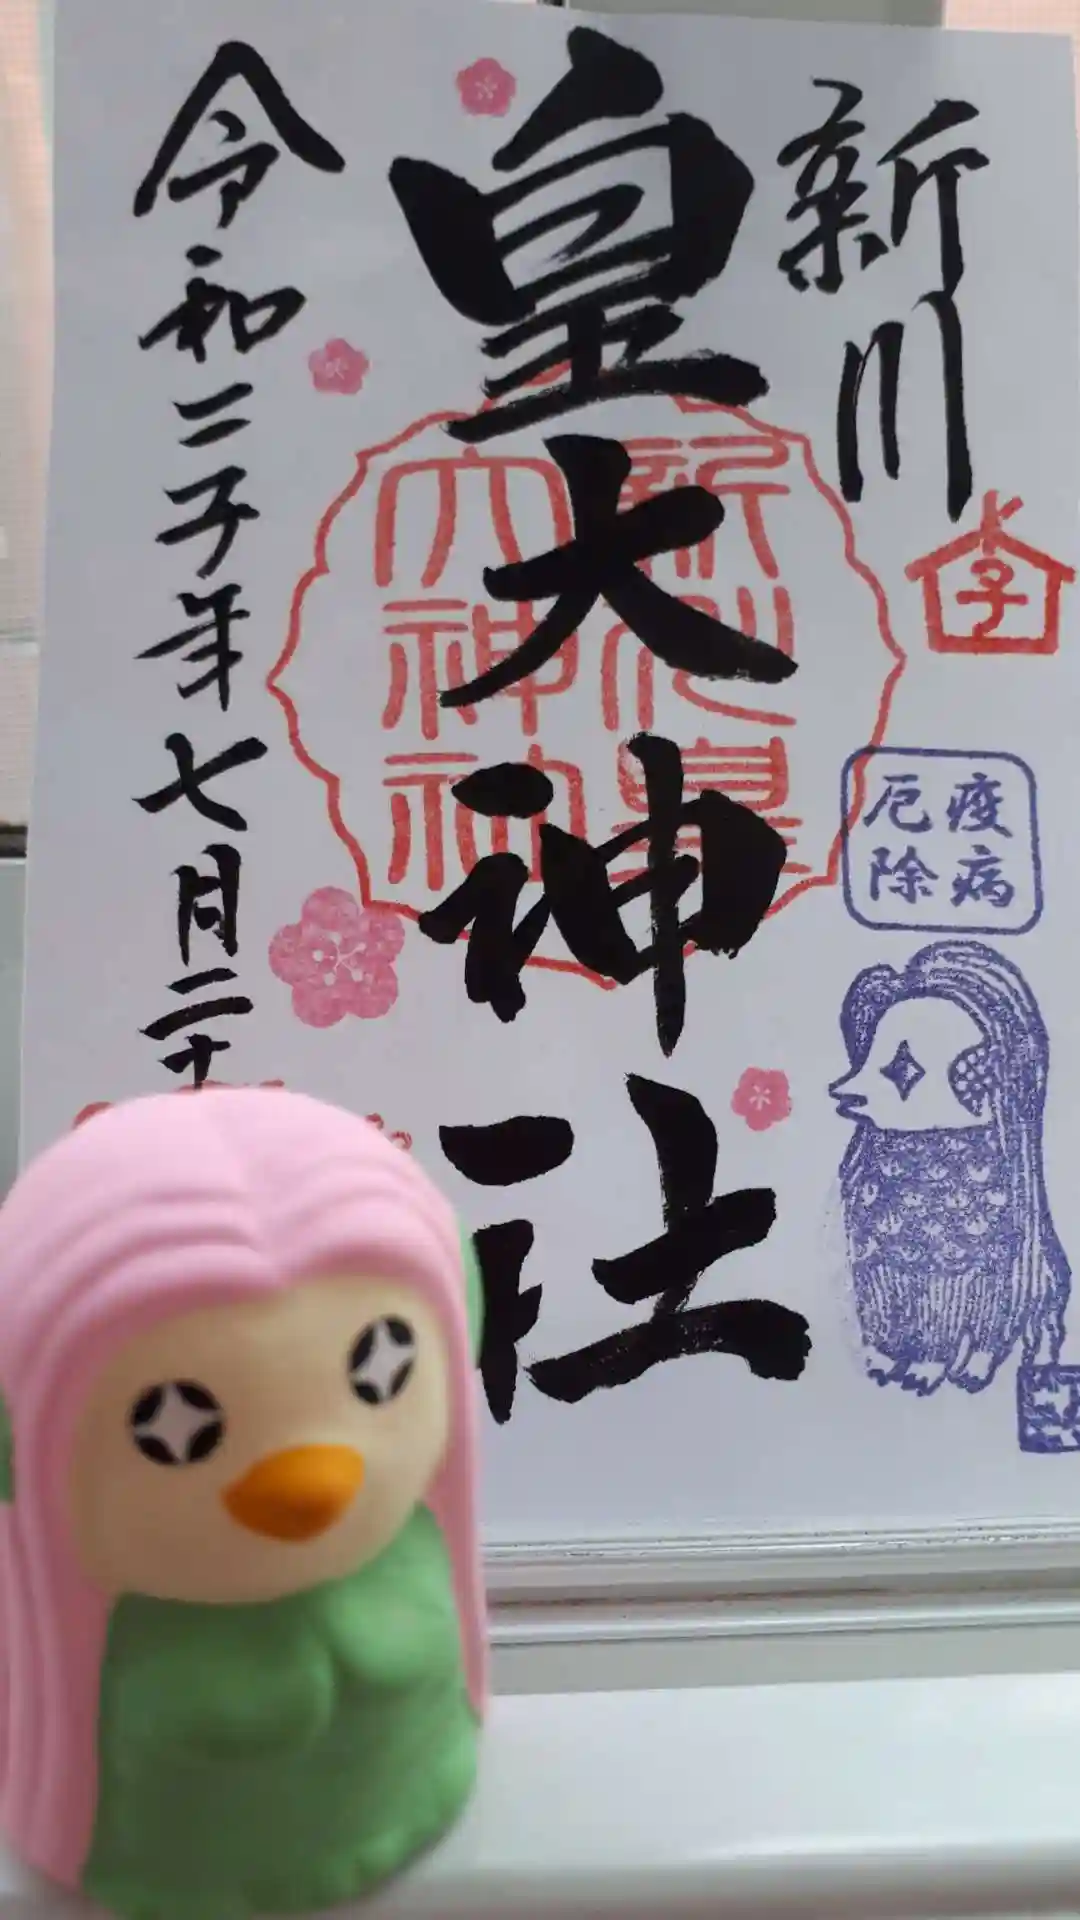 新川
子
疫病
厄除
皇大神社
新川皇
大神社
令和二子年七月二十